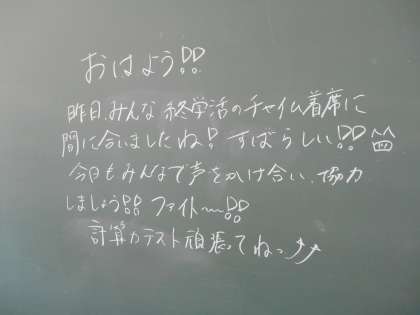 おはよう!!
昨日、みんな終学活のチャイム着席に
間に合いましたね! すばらしい!!
今日もみんなで声をかけ合い、協力
しましょう!! ファイト〜!!
計算力テスト頑張ってねっ